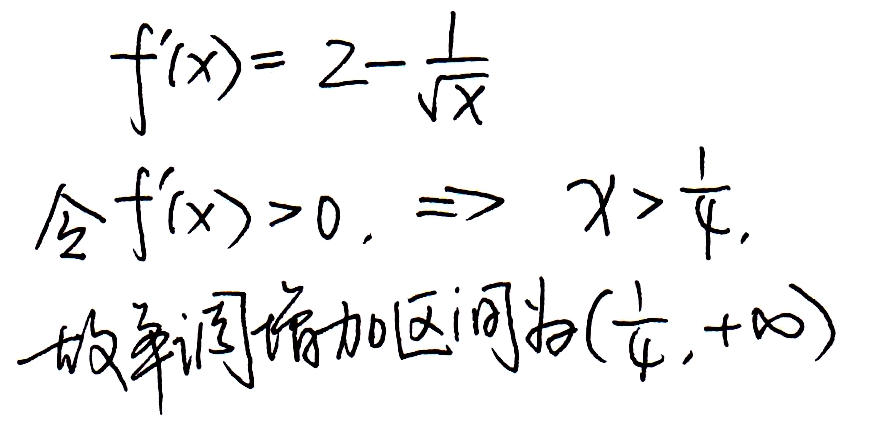 f'(x) = 2 - 1/√x
令 f'(x) > 0. ⇒ x > 1/4.
故单调增加区间为(1/4, +∞)